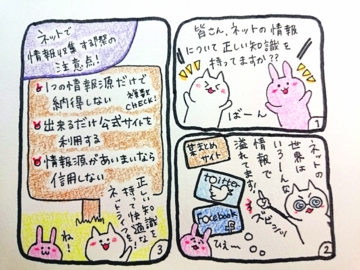 皆さん、ネットの情報
について正しい知識を
持ってますか??
ばーん
1
ネットの
世界は
いろーんな
情報で
溢れてます!
ズビシッ
某まとめ
サイト
twitter
Facebook
ひえ~
2
ネットで
情報収集する際の
注意点!
1つの情報源だけで
納得しない
CHECK!
出来るだけ公式サイトを
利用する
情報源があいまいなら
信用しない
正しい知識を
持って快適な
ね!
3